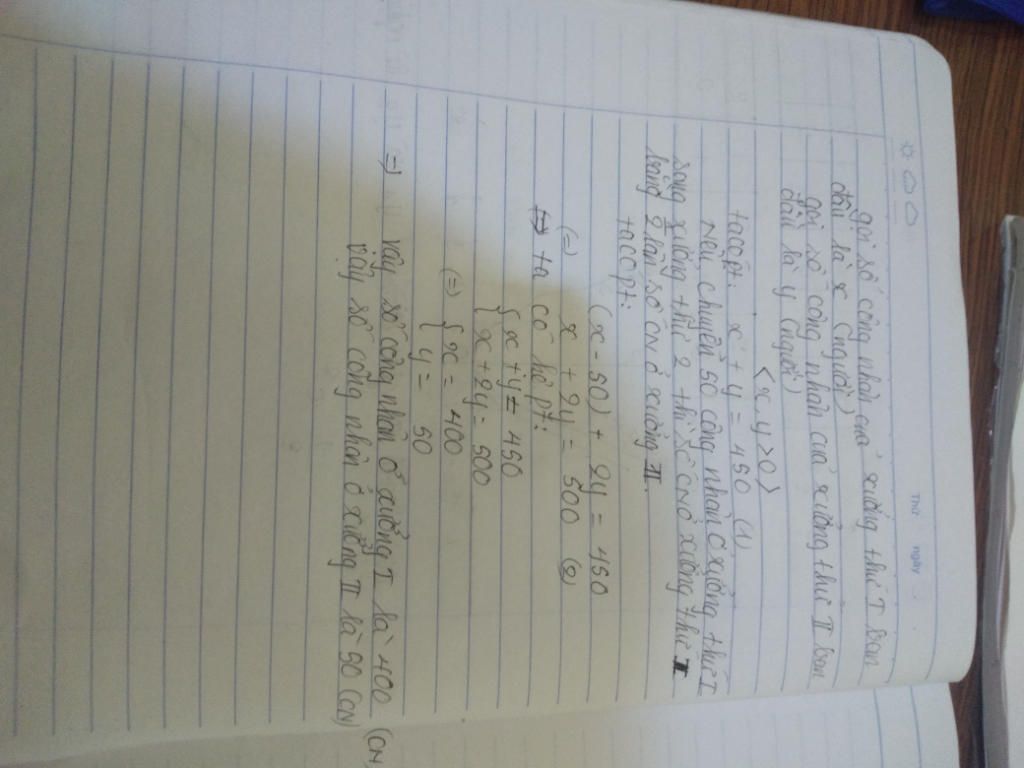 Thứ ngày
gọi số công nhân của xưởng thứ I ban
đầu là x (người)
gọi số công nhân của xưởng thứ II ban
đầu là y (người)
<x, y>0>
ta có pt: x + y = 450 (1)
Nếu chuyển 50 công nhân ở xưởng thứ I
sang xưởng thứ 2 thì số CN ở xưởng thứ I
bằng 2 lần số CN ở xưởng II.
ta có pt:
(x - 50) + 2y = 450
(=) x + 2y = 500 (2)
=> ta có hệ pt:
{ x + y = 450
{ x + 2y = 500
(=) { x = 400
{ y = 50
=) Vậy số công nhân ở xưởng I là 400 (CN)
Vậy số công nhân ở xưởng II là 50 (CN)